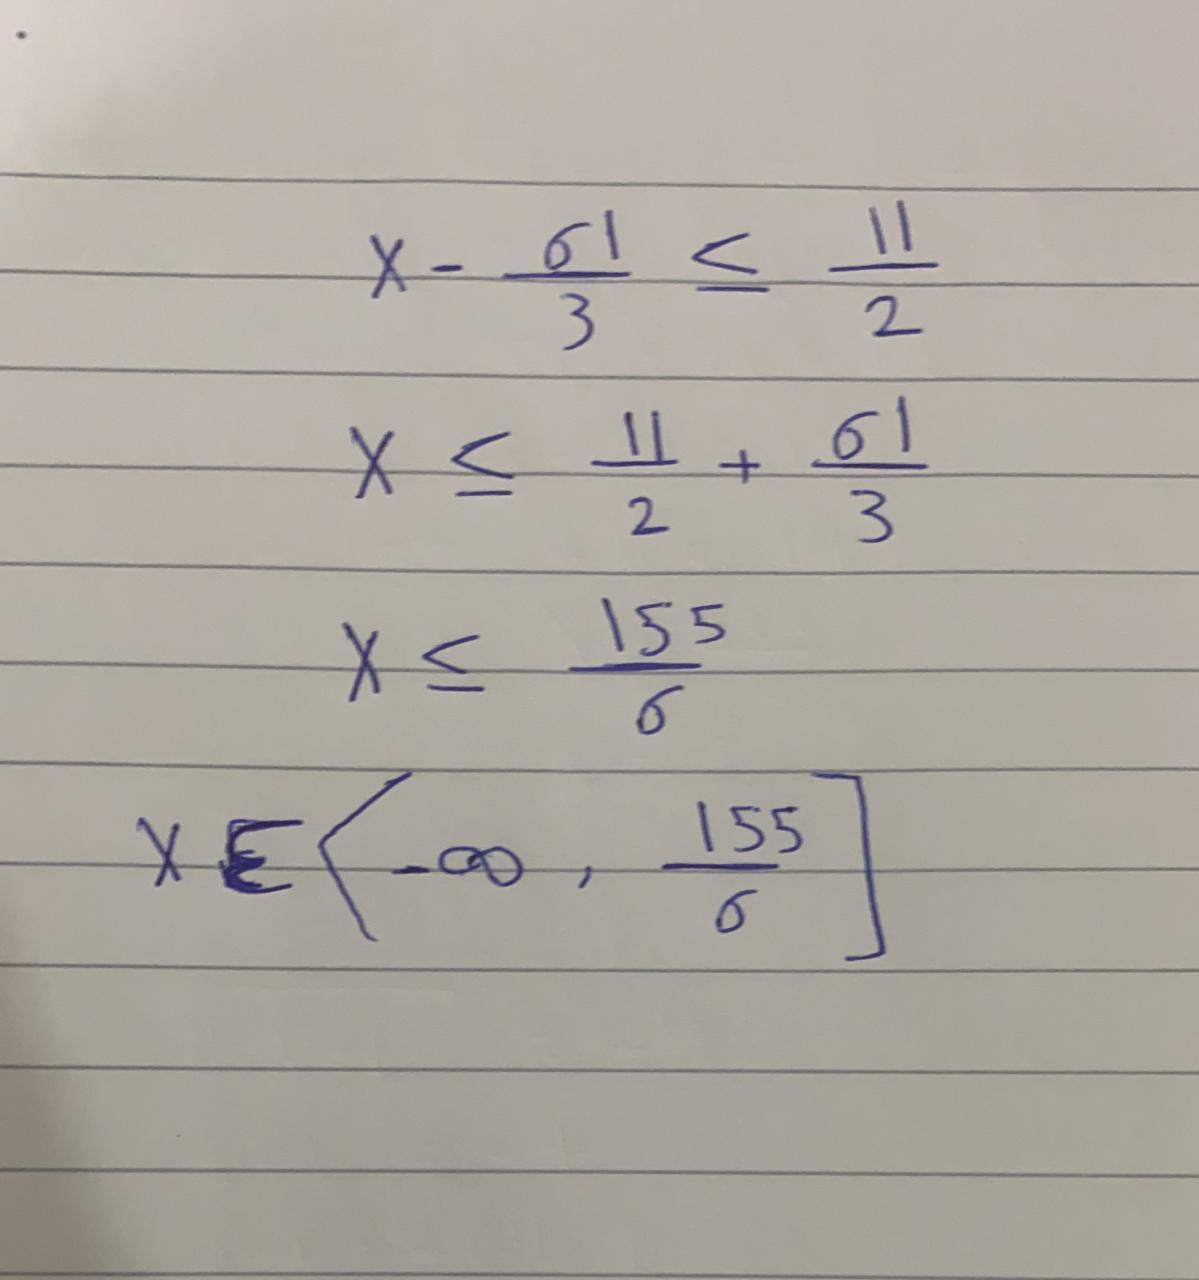 X - 61/3 ≤ 11/2
X ≤ 11/2 + 61/3
X ≤ 155/6
X ∈ ⟨-∞, 155/6]